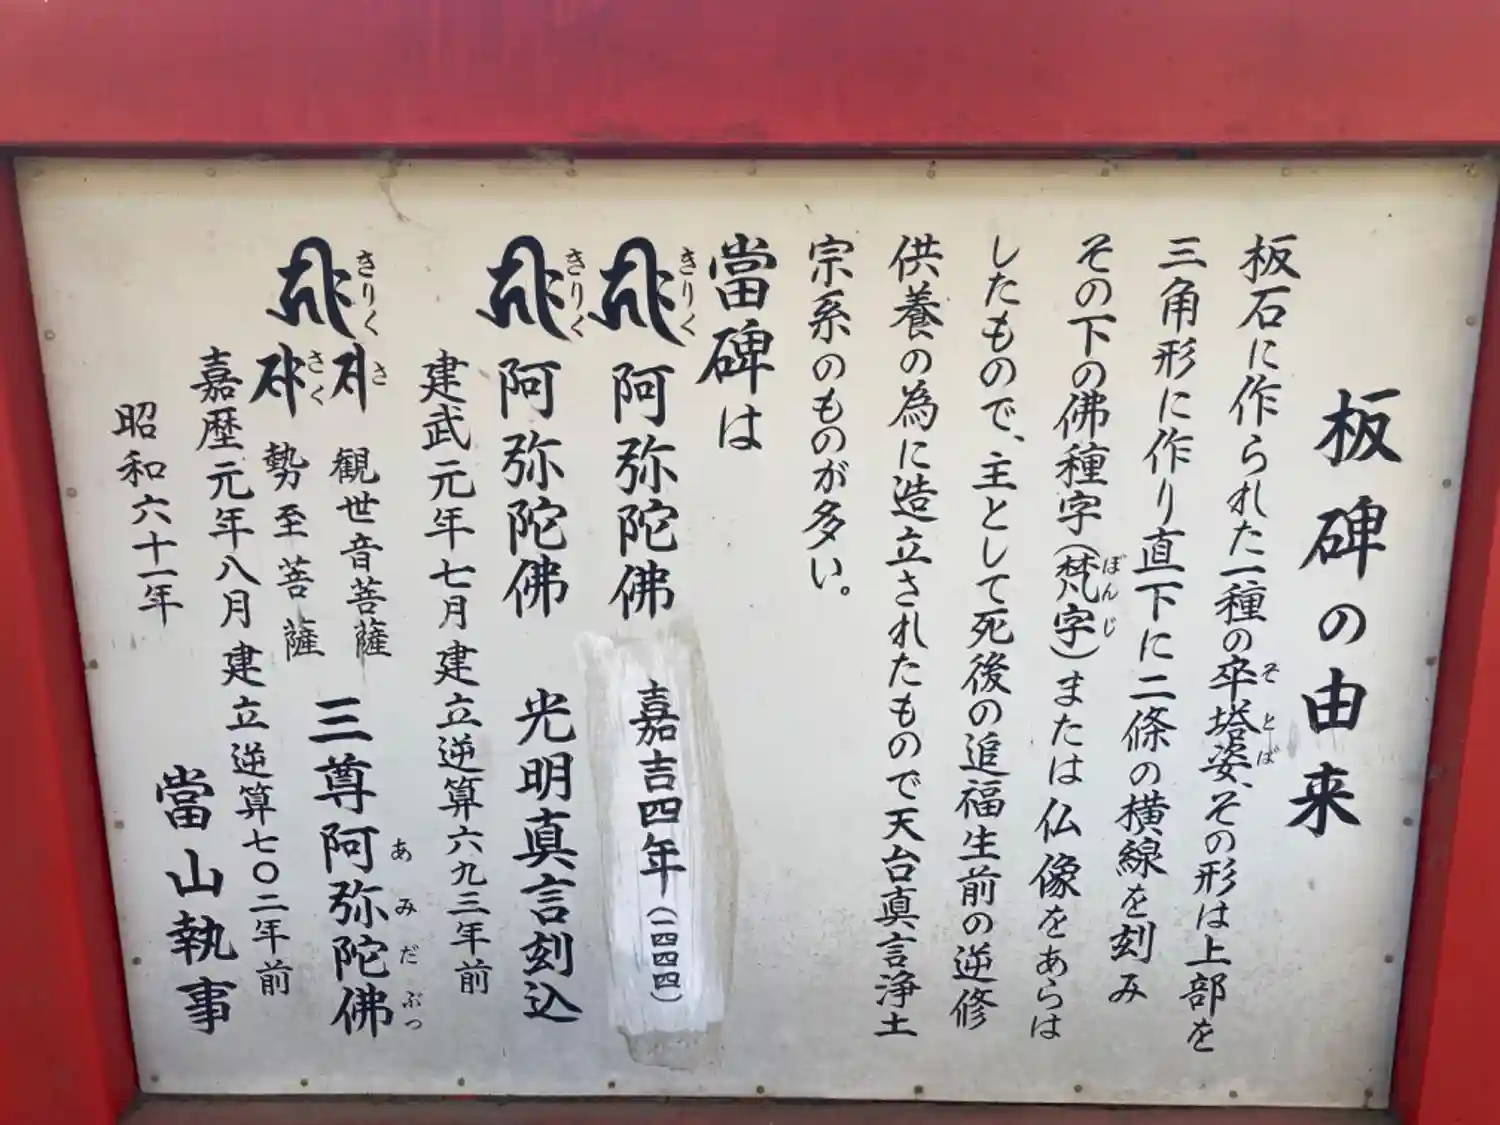 板碑の由来
板石に作られた一種の卒塔姿、その形は上部を
そとば
三角形に作り直下に二條の横線を刻み
その下の佛種字(梵字)または仏像をあらは
ぼんじ
したもので、主として死後の追福生前の逆修
供養の為に造立されたもので天台真言浄土
宗系のものが多い。
當碑は
きりく
阿弥陀佛 嘉吉四年(一四四四)
きりく
阿弥陀佛 光明真言刻込
建武元年七月建立逆算六九三年前
きりく
さ 観世音菩薩
さく 勢至菩薩
三尊阿弥陀佛
あみだぶつ
嘉歴元年八月建立逆算七〇二年前
昭和六十一年
當山執事